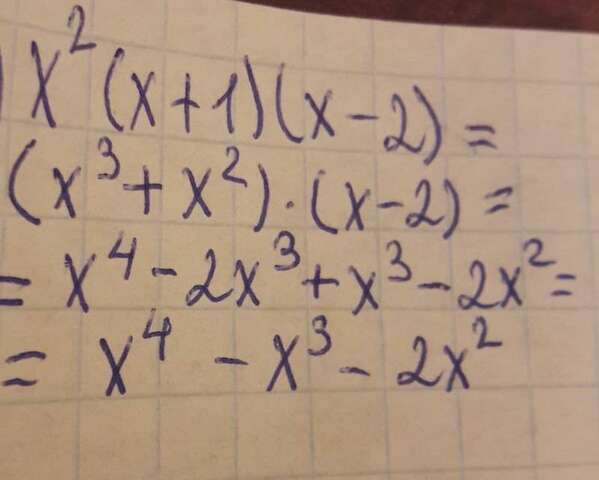 ) x²(x+1)(x-2)=
(x³+x²)·(x-2)=
= x⁴-2x³+x³-2x²=
= x⁴-x³-2x²